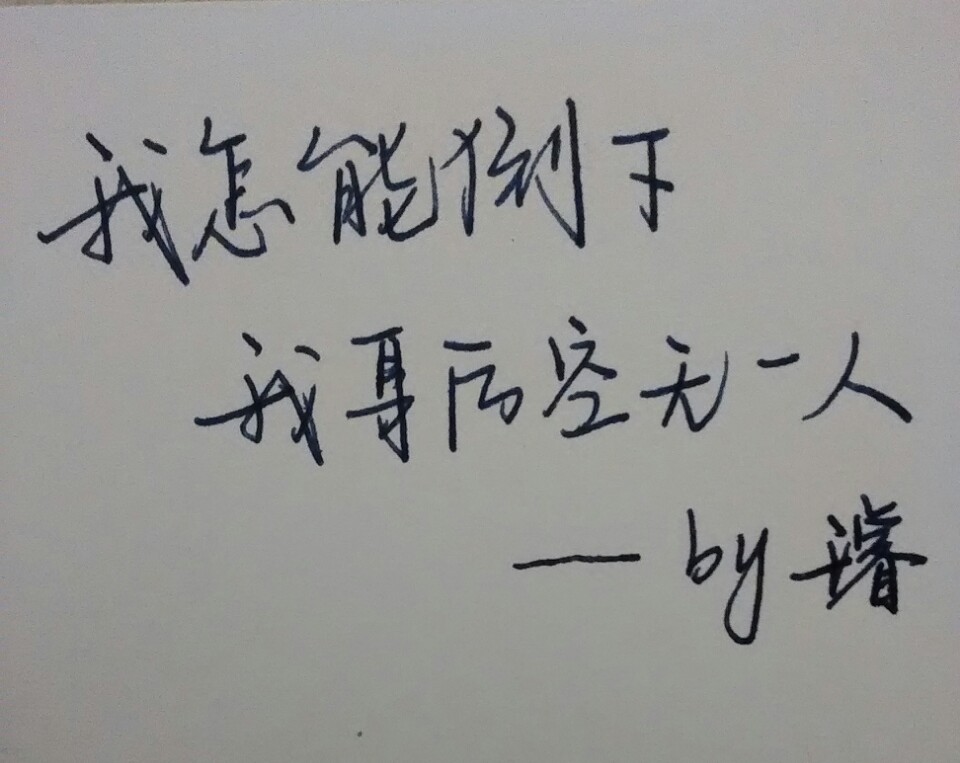 我怎能倒下
我身后空无一人
—by 璿